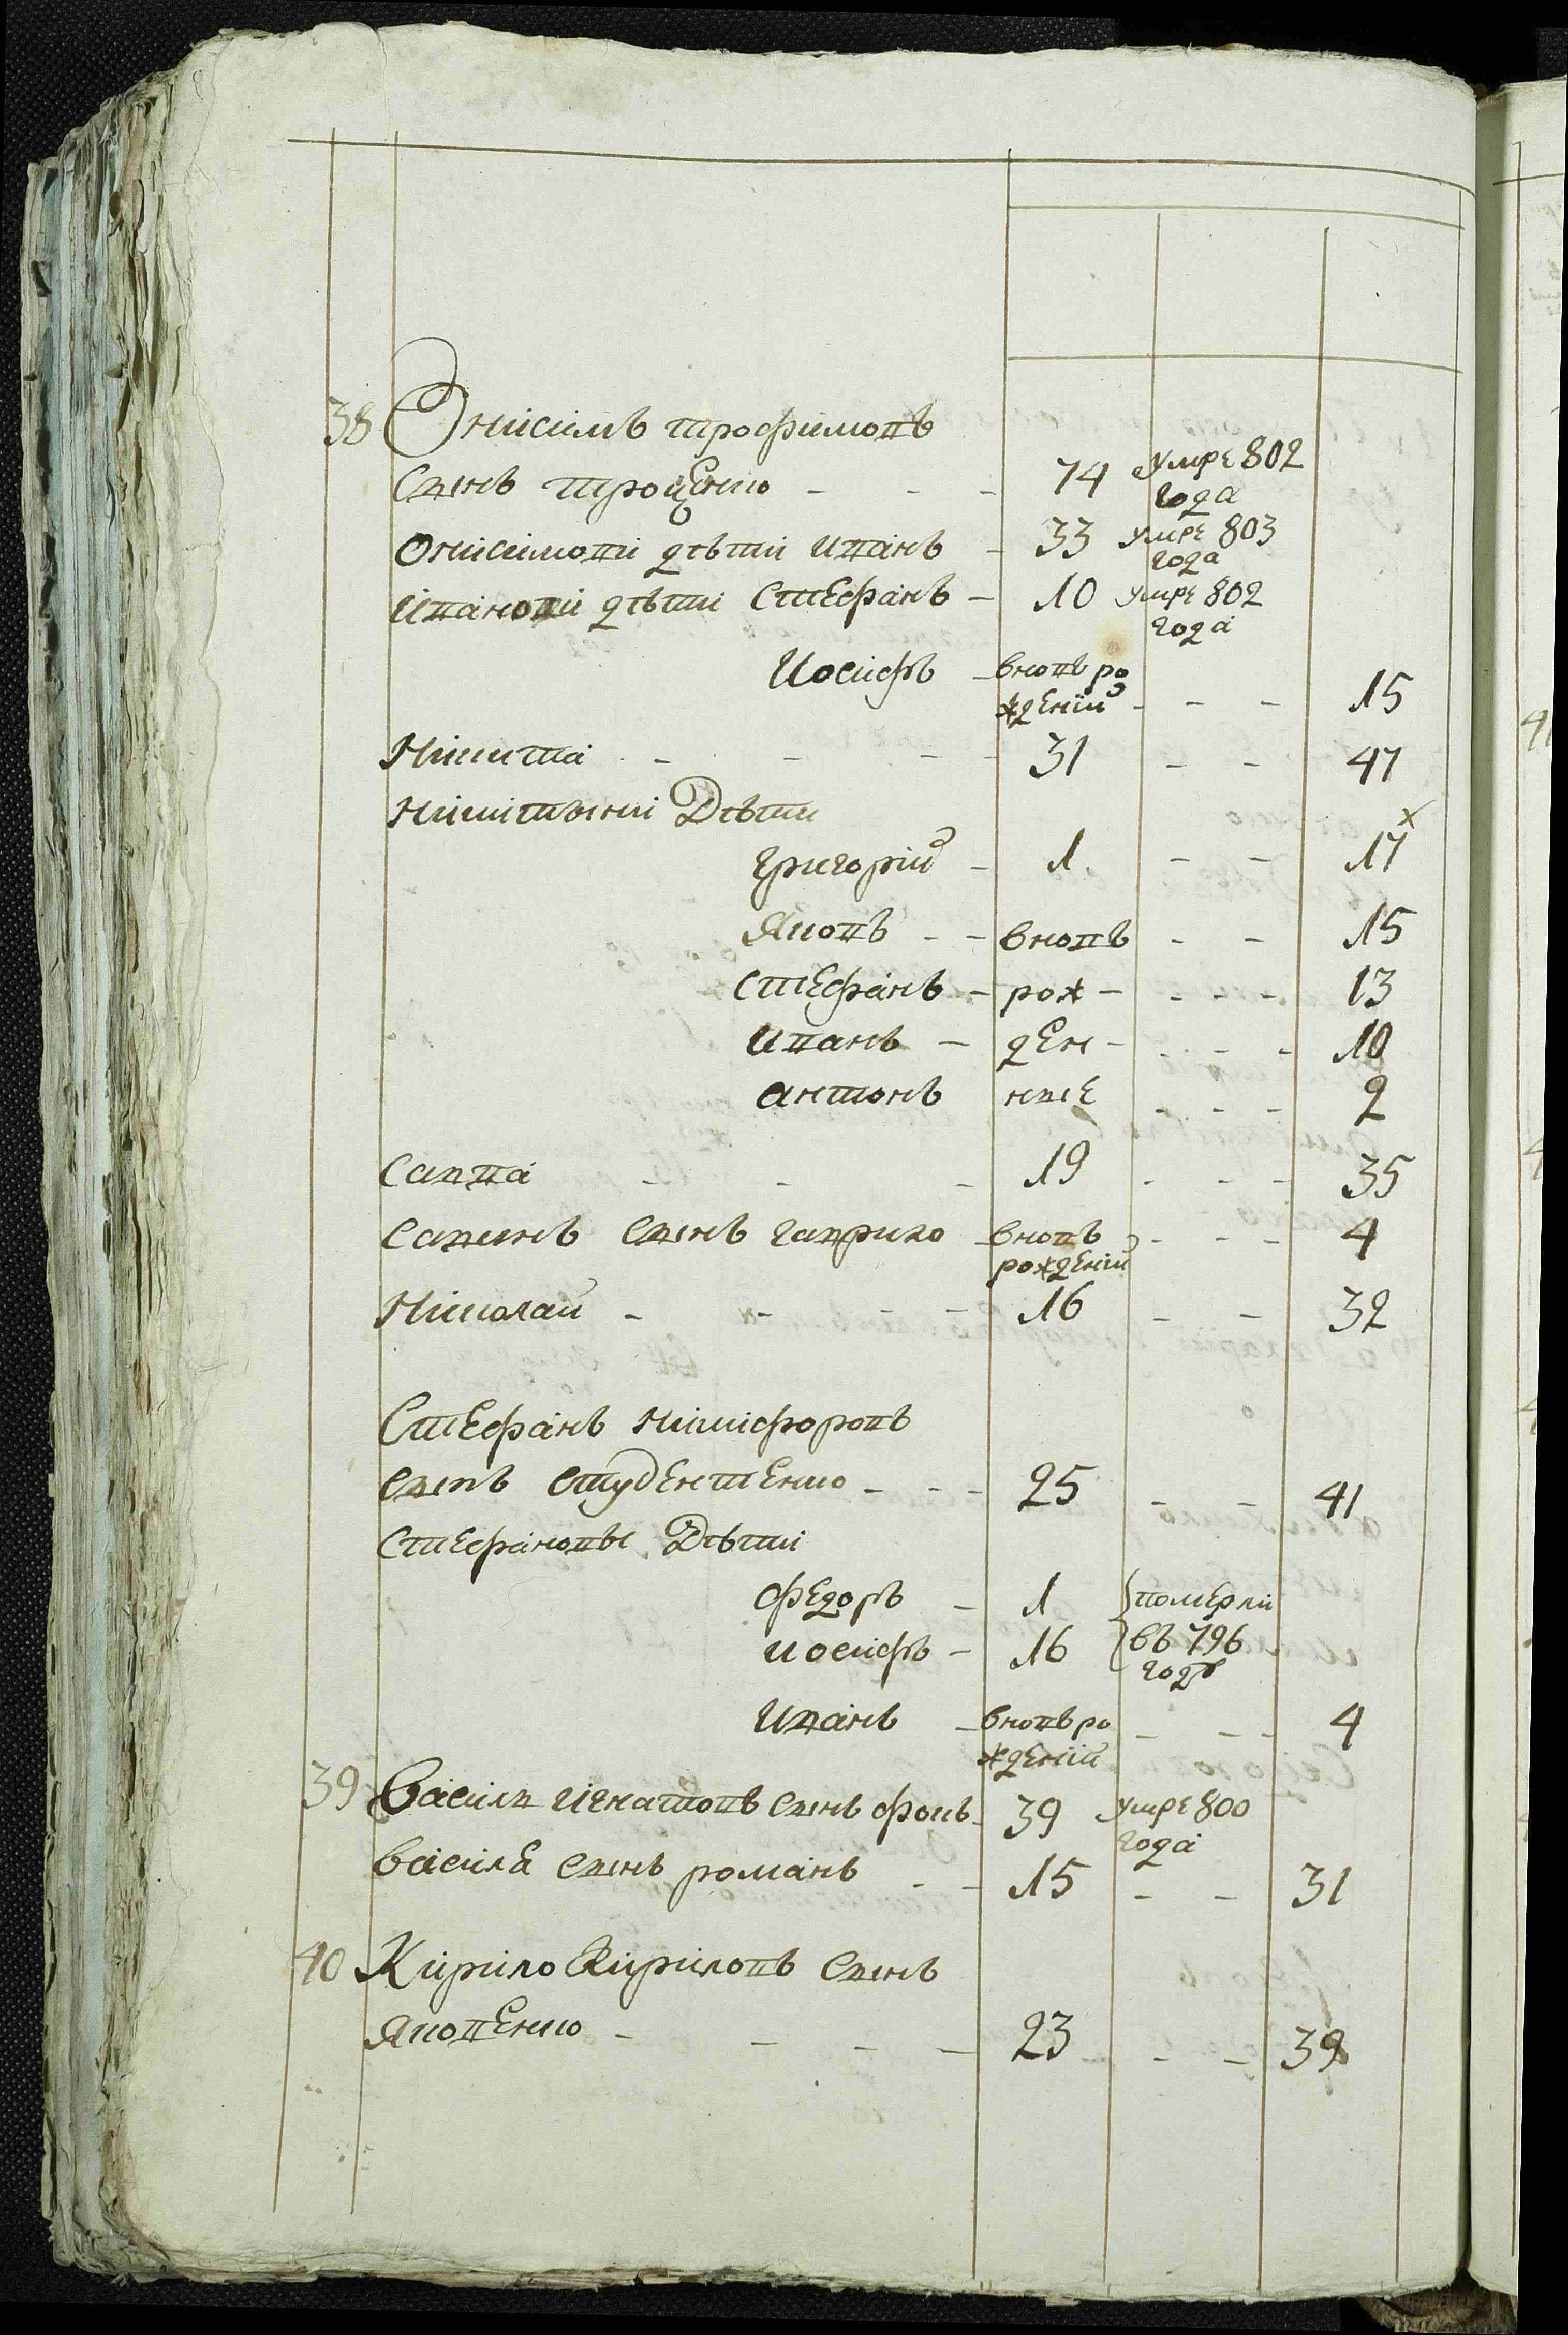 38 Онисимъ трофимовъ
сынъ троценко - - - 74 умре 802
года
Онисимови дѣти иванъ - 33 умре 803
года
ивановы дѣти Стефанъ - 10 умре 802
года
Иосифъ - вновь ро
жденій - - - 15
Никита - - - 31 - - 47
никитины Дѣти
григорій - 1 - - 17 х
Яковъ - - вновь - - 15
стефанъ - рож - - - - 13
иванъ - ден - - - - 10
антонъ ные - - - 2
Савва - - - 19 - - - 35
савинъ сынъ гаврило - вновь - - - 4
рожденій
Николай - - - - 16 - - 32
Стефанъ никифоровъ
сынъ студентенко - - - 25 - - 41
Стефановы Дѣти
федоръ - 1 померли
иосифъ - 16 въ 796
годѣ
Иванъ - вновь ро - - - 4
жденій
39 Василь игнатовъ сынъ фоиъ - 39 умре 800
года
василя сынъ романъ - - 15 - - 31
40 Кирило Кириловъ сынъ
Яковенко - - - - 23 - - 39